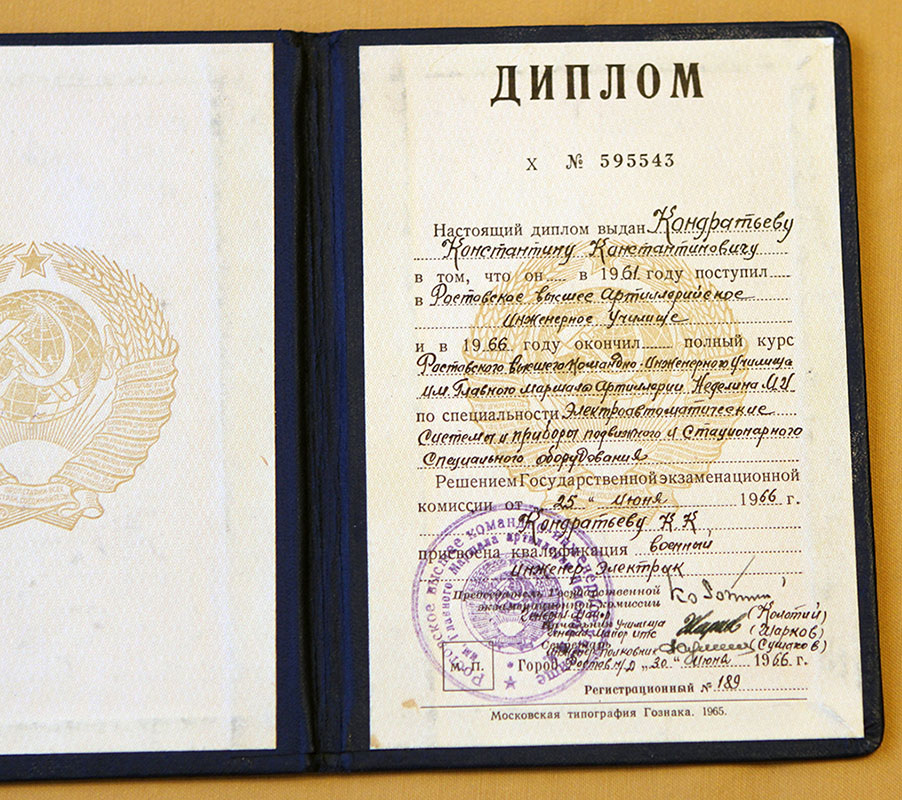 ДИПЛОМ
X № 595543
Настоящий диплом выдан Кондратьеву
Константину Константиновичу
в том, что он в 1961 году поступил
в Ростовское высшее Артиллерийское
Инженерное Училище
и в 1966 году окончил полный курс
Ростовского высшего Командно-Инженерного Училища
им. Главного Маршала Артиллерии Неделина М.И
по специальности Электроавтоматические
Системы и приборы подвижного и Стационарного
Специального оборудования
Решением Государственной экзаменационной
комиссии от „25" Июня 1966 г.
Кондратьеву К.К.
присвоена квалификация военный
инженер-Электрик
Председатель Государственной
экзаменационной комиссии
Генерал-Майор (Колотий)
Начальник Училища
Генерал-Майор ИТС (Шарков)
Секретарь
Полковник (Сушаков)
М. П. Город Ростов н/Д „30" Июня 1966 г.
Регистрационный № 189
Московская типография Гознака. 1965.